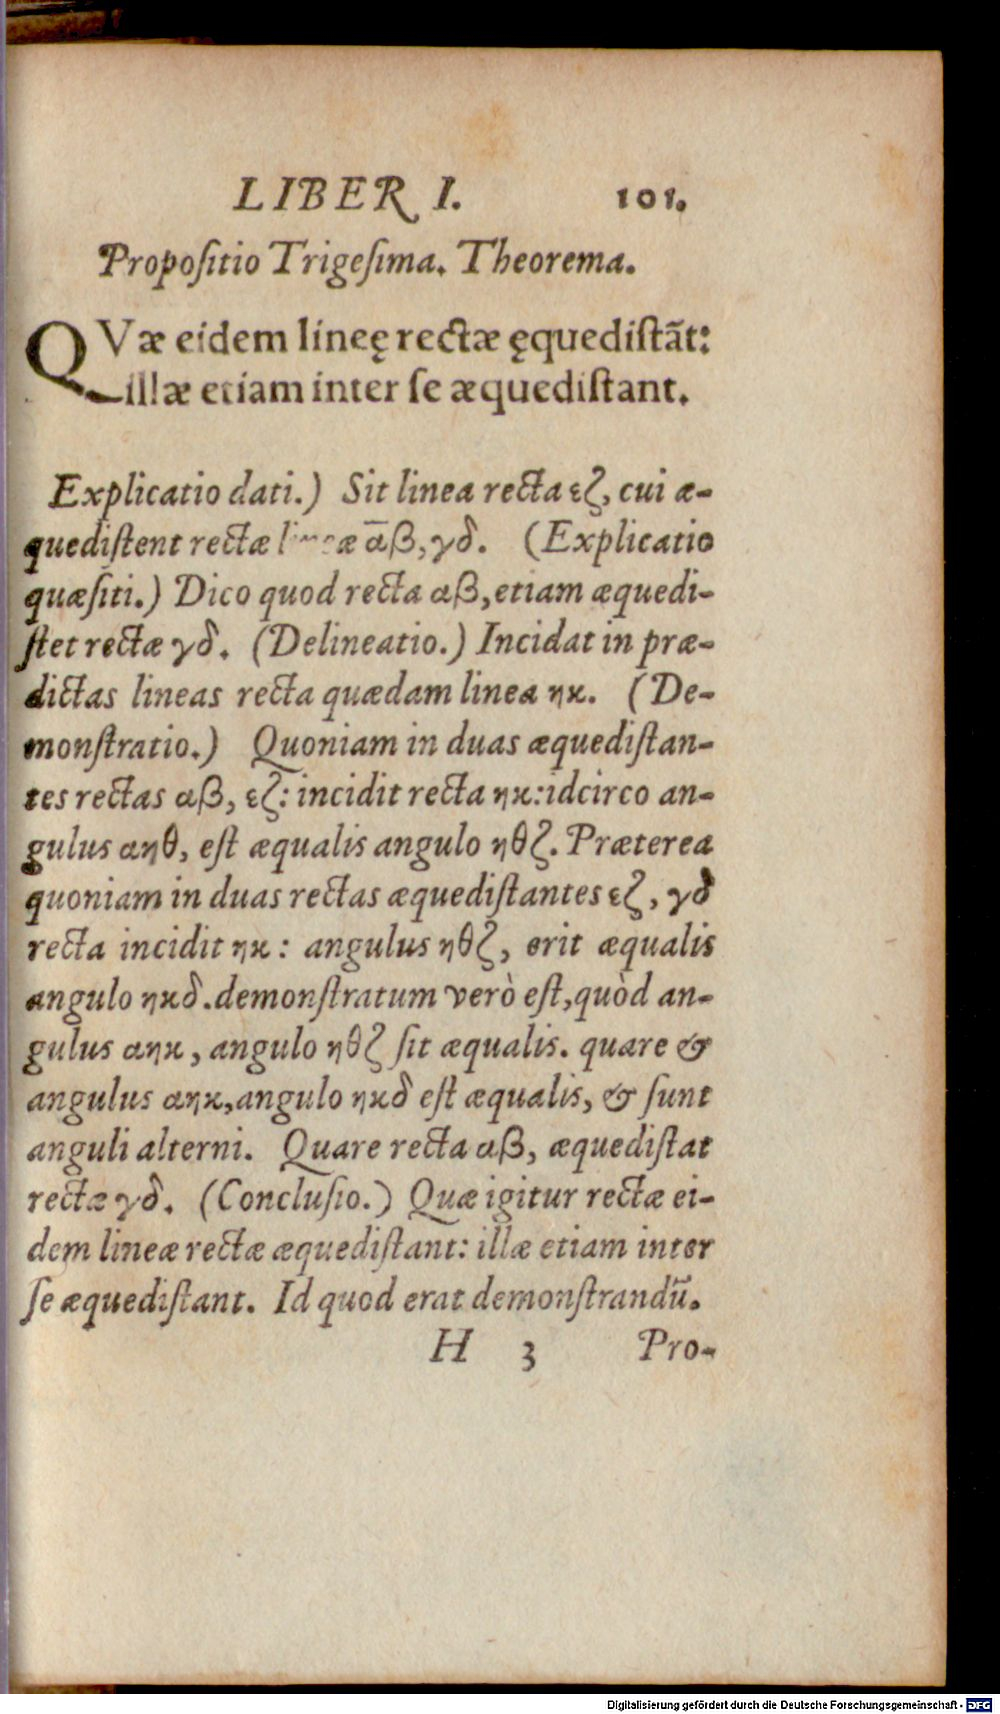 LIBER I. 101.
Propoſitio Trigeſima. Theorema.
QVæ eidem lineę rectæ ęquediſtãt:
illæ etiam inter ſe æquediſtant.
Explicatio dati.) Sit linea recta εζ, cui æ-
quediſtent rectæ αβ, γδ. (Explicatio
quæſiti.) Dico quod recta αβ, etiam æquedi-
ſtet rectæ γδ. (Delineatio.) Incidat in præ-
dictas lineas recta quædam linea ηκ. (De-
monſtratio.) Quoniam in duas æquediſtan-
tes rectas αβ, εζ: incidit recta ηκ: idcirco an-
gulus αηθ, eſt æqualis angulo ηθζ. Præterea
quoniam in duas rectas æquediſtantes εζ, γδ
recta incidit ηκ: angulus ηθζ, erit æqualis
angulo ηκδ. demonſtratum verò eſt, quòd an-
gulus αηκ, angulo ηθζ ſit æqualis. quare &
angulus αηκ, angulo ηκδ eſt æqualis, & ſunt
anguli alterni. Quare recta αβ, æquediſtat
rectæ γδ. (Concluſio.) Quæ igitur rectæ ei-
dem lineæ rectæ æquediſtant: illæ etiam inter
ſe æquediſtant. Id quod erat demonſtrandũ.
H 3 Pro-
Digitalisierung gefördert durch die Deutsche Forschungsgemeinschaft - DFG